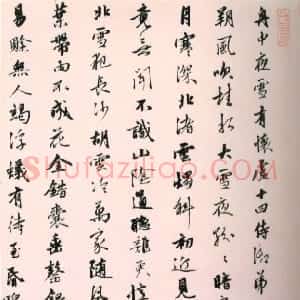 舟中夜雪有懷盧十四侍御弟
朔風吹桂水大雪夜紛紛暗
月寒深北渚雲燭斜初近見
竟无聞不識山陰道聽雞更憶
北雪犯長沙胡雲冷萬家隨風
葉帶雨不成花金錯囊垂罄銀
易賒無人竭浮蟻有待至昏
Shufaziliao.com